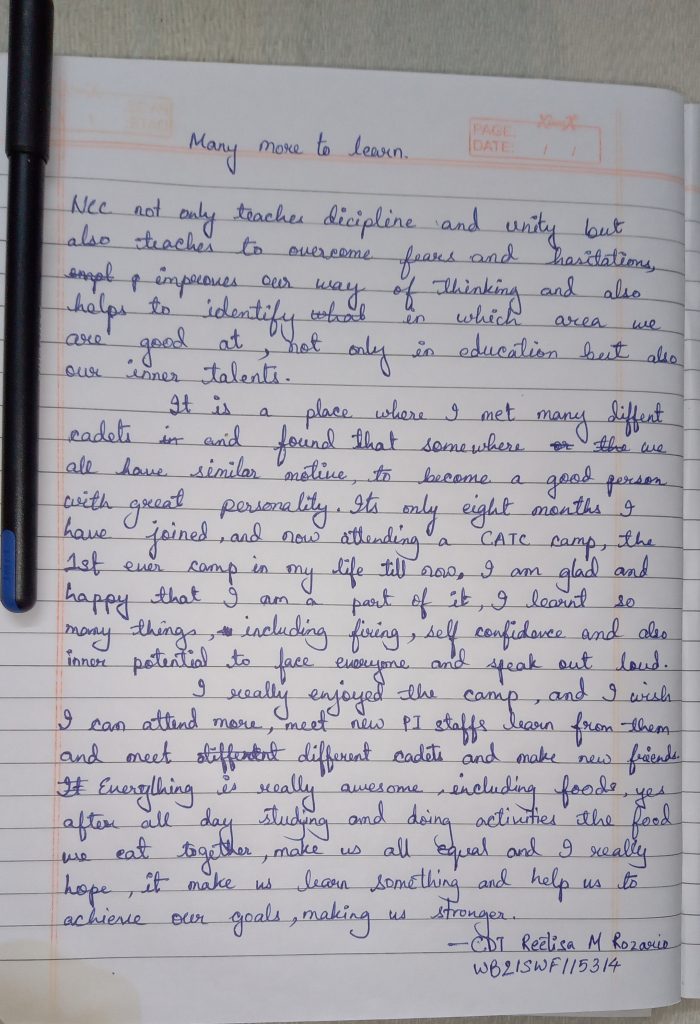 PAGE:
DATE: / /
Many more to learn.
Ncc not only teaches dicipline and unity but
also teaches to overcome fears and hasitations,
improves our way of thinking and also
helps to identify what in which area we
are good at, not only in education but also
our inner talents.
It is a place where I met many diffent
cadets in and found that somewhere or the we
all have similar motive, to become a good person
with great personality. Its only eight months I
have joined, and now attending a CATC camp, the
1st ever camp in my life till now, I am glad and
happy that I am a part of it, I learnt so
many things, including firing, self confidence and also
inner potential to face everyone and speak out loud.
I really enjoyed the camp, and I wish
I can attend more, meet new PI staffs learn from them
and meet different cadets and make new friends.
It Everything is really awesome, including foods, yes
after all day studing and doing activities the food
we eat together, make us all equal and I really
hope, it make us learn something and help us to
achieve our goals, making us stronger.
—CDT Reelisa M Rozario
WB21SWF115314